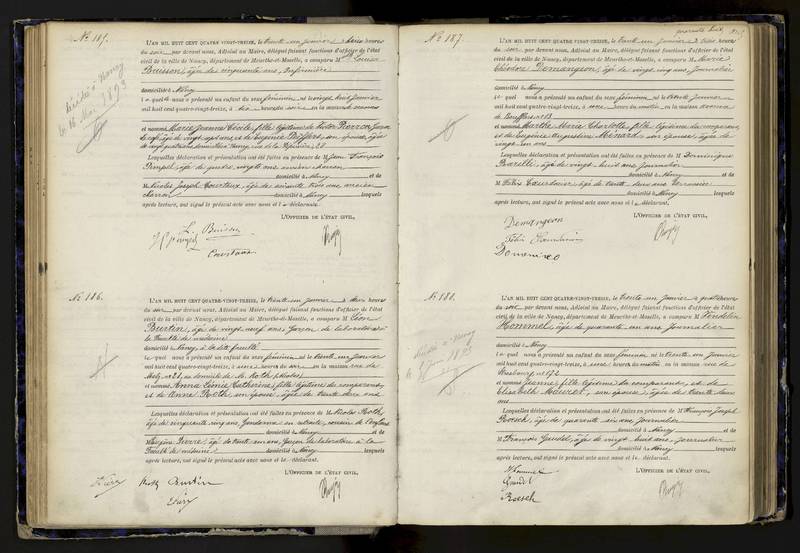 N° 185.
L'AN MIL HUIT CENT QUATRE VINGT-TREIZE, le trente un janvier à trois heures
du soir, par devant nous, Adjoint au Maire, délégué faisant fonctions d'officier de l'état
civil de la ville de Nancy, département de Meurthe-et-Moselle, a comparu M Louise
Buisson, âgée de cinquante ans,
domiciliée à Nancy
la quelle nous a présenté un enfant du sexe féminin né le vingt huit janvier
mil huit cent quatre-vingt-treize, à heures du soir, en la
et nommé Marie Jeanne Cécile, fille légitime de Victor Pierron, Garçon
de café, âgé de ans et de Eugénie son épouse, âgée
de vingt quatre ans, domiciliés à Nancy, rue de la Pépinière, 28
Lesquelles déclaration et présentation ont été faites en présence de M Jean François
Pimpel, âgé de quatre vingts ans
domicilié à Nancy et de
M. Nicolas Joseph Courtaux, âgé de soixante trois ans, ancien
charron domicilié à Nancy lesquels
après lecture, ont signé le présent acte avec nous et la déclarante.
L'OFFICIER DE L'ÉTAT CIVIL,
L. Buisson
Courtaux
décédée à Nancy
le 16 Mai 1893
N° 186.
L'AN MIL HUIT CENT QUATRE-VINGT-TREIZE, le trente un janvier à deux heures
du soir, par devant nous, Adjoint au Maire, délégué faisant fonctions d'officier de l'état
civil de la ville de Nancy, département de Meurthe-et-Moselle, a comparu M. Léon
Burtin, âgé de vingt neuf ans, Garçon de laboratoire à
la Faculté de médecine
domicilié à Nancy, à la dite faculté
lequel nous a présenté un enfant du sexe féminin né le trente un janvier
mil huit cent quatre-vingt-treize, à une heure du soir, en la maison rue de
Metz, n° 21, au domicile de M. Roth Nicolas
et nommé Anna Léonie Catherine, fille légitime du comparant
et de Anne Roth, son épouse, âgée de trente deux ans
Lesquelles déclaration et présentation ont été faites en présence de M Nicolas Roth
âgé de cinquante cinq ans, Gendarme en retraite,
domicilié à Nancy et de
M Eugène Pierre, âgé de trente un ans, Garçon de laboratoire à la
Faculté de médecine domicilié à Nancy lesquels
après lecture, ont signé le présent acte avec nous et le déclarant.
L'OFFICIER DE L'ÉTAT CIVIL,
Roth Burtin
N° 187.
L'AN MIL HUIT CENT QUATRE-VINGT-TREIZE, le trente un janvier à trois heures
du soir, par devant nous, Adjoint au Maire, délégué faisant fonctions d'officier de l'état
civil de la ville de Nancy, département de Meurthe-et-Moselle, a comparu M. Marie
Théodore Demangeon, âgé de vingt cinq ans, journalier
domicilié à Nancy
lequel nous a présenté un enfant du sexe féminin né le trente janvier
mil huit cent quatre-vingt-treize, à onze heures du matin en la maison avenue
de Boufflers n° 13
et nommé Marthe Marie Charlotte, fille légitime du comparant
et de Eugénie Augustine Ménard, son épouse, âgée de
vingt un ans
Lesquelles déclaration et présentation ont été faites en présence de M Dominique
âgé de vingt huit ans, journalier
domicilié à Nancy et de
M Félix âgé de trente deux ans, terrassier
domicilié à Nancy lesquels
après lecture, ont signé le présent acte avec nous et le déclarant.
L'OFFICIER DE L'ÉTAT CIVIL,
Demangeon
Félix
Domenico
N° 188.
L'AN MIL HUIT CENT QUATRE-VINGT-TREIZE, le trente un janvier à quatre heures
du soir par devant nous, Adjoint au Maire, délégué faisant fonctions d'officier de l'état
civil de la ville de Nancy, département de Meurthe-et-Moselle, a comparu M Vendelin
Hommel, âgé de quarante un ans, journalier
domicilié à Nancy
lequel nous a présenté un enfant du sexe féminin né le trente un janvier
mil huit cent quatre-vingt-treize, à une heure du matin en la maison rue de
Strasbourg, n° 172
et nommé Jeanne, fille légitime du comparant, et de
Elisabeth son épouse, âgée de trente deux
ans
Lesquelles déclaration et présentation ont été faites en présence de M François Joseph
Roesch, âgé de quarante six ans, journalier
domicilié à Nancy et de
M François âgé de vingt huit ans, journalier
domicilié à Nancy lesquels
après lecture, ont signé le présent acte avec nous et le déclarant.
L'OFFICIER DE L'ÉTAT CIVIL,
Hommel
Roesch
décédée à Nancy